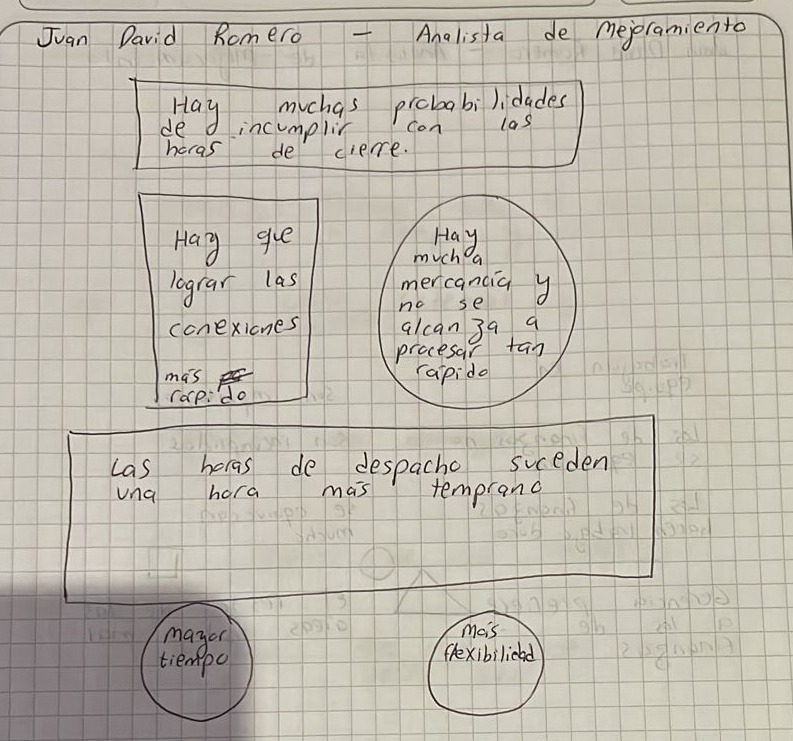 Juan David Romero - Analista de Mejoramiento
Hay muchas probabilidades
de incumplir con las
horas de cierre.
Hay que
lograr las
conexiones
más
rapido
Hay
mucha
mercancía y
no se
alcanza a
procesar tan
rápido
Las horas de despacho suceden
una hora más temprano
mayor
tiempo
más
flexibilidad